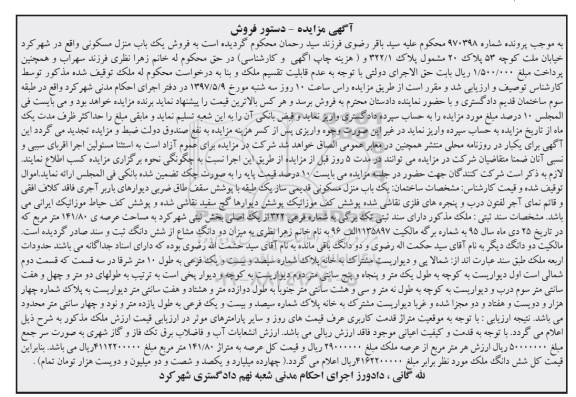 آگهی مزایده - دستور فروش
به موجب پرونده شماره ۹۷۰۳۹۸ محکوم علیه سید باقر رضوی فرزند سید رحمان محکوم گردیده است به فروش یک باب منزل مسکونی واقع در شهرکرد
خیابان ملت کوچه ۵۳ پلاک ۲۰ مشمول پلاک ۳۲۲/۱ و ( هزینه چاپ آگهی و کارشناسی) در حق محکوم له خانم زهرا نظری فرزند سهراب و همچنین
پرداخت مبلغ ۱/۵۰۰/۰۰۰ ریال بابت حق الاجرای دولتی با توجه به عدم قابلیت تقسیم ملک و بنا به درخواست محکوم له ملک توقیف شده مذکور توسط
کارشناس توصیف و ارزیابی شد و مقرر است از طریق مزایده راس ساعت ۱۰ روز سه شنبه مورخ ۱۳۹۷/۵/۹ در دفتر اجرای احکام مدنی شهرکرد واقع در طبقه
سوم ساختمان قدیم دادگستری و با حضور نماینده دادستان محترم به فروش برسد و هر کس بالاترین قیمت را پیشنهاد نماید برنده مزایده خواهد بود و می بایست فی
المجلس ۱۰ درصد مبلغ مورد مزایده را به حساب سپرده دادگستری واریز نماید و فیش بانکی آن را به این شعبه تسلیم نماید و مابقی مبلغ را حداکثر ظرف مدت یک
ماه از تاریخ مزایده به حساب سپرده واریز نماید در غیر این صورت وجوه واریزی پس از کسر هزینه مزایده به نفع صندوق دولت ضبط و مزایده تجدید می گردد این
آگهی برای یکبار در روزنامه محلی منتشر همچنین در معابر عمومی الصاق خواهد شد شرکت در مزایده برای عموم آزاد است به استثنا مسئولین اجرا اقربای سببی و
نسبی آنان ضمنا متقاضیان شرکت در مزایده می توانند در مدت ۵ روز قبل از مزایده از طریق این اجرا نسبت به چگونگی نحوه برگزاری مزایده کسب اطلاع نمایند.
لازم به ذکر است شرکت کنندگان جهت حضور در جلسه مزایده می بایست ۱۰ درصد قیمت پایه را به صورت چک تضمین شده بانکی فی المجلس ارائه نماید.اموال
توقیف شده و قیمت کارشناس: مشخصات ساختمان: یک باب منزل مسکونی قدیمی ساز یک طبقه با پوشش سقف طاق ضربی دیوارهای باربر آجری فاقد کلاف افقی
و قائم نمای آجر لفتون درب و پنجره های فلزی نقاشی شده پوشش کف موزائیک پوشش دیوارها گچ سفید نقاشی شده و پوشش کف حیاط موزائیک ایرانی می
باشد. مشخصات سند ثبتی : ملک مذکور دارای سند ثبتی تک برگی به شماره فرعی ۳۲۲از یک اصلی بخش یک شهرکرد به مساحت عرصه ی ۱۴۱/۸۰ متر مربع که
در تاریخ ۲۵ دی ماه سال ۹۵ به شماره برگه مالکیت ۱۱۳۵۸۹۷الف ۹۶ به نام خانم زهرا نظری به میزان دو دانگ مشاع از شش دانگ ثبت و سند صادر گردیده است.
مالکیت دو دانگ دیگر به نام آقای سید حکمت اله رضوی و دو دانگ باقی مانده به نام آقای سید حکمت اله رضوی بوده که دارای اسناد جداگانه می باشند حدودات
اربعه ملک طبق سند عبارت اند از: شمالا پی و دیواریست مشترک به خانه پلاک شماره سیصد و بیست و یک فرعی به طول ۱۰ متر شرقا در سه قسمت که قسمت دوم
شمالی است اول دیواریست به کوچه به طول یک متر و پنجاه و پنج سانتی متر دوم دیواریست به کوچه و دیوار پخی است به ترتیب به طولهای دو متر و چهل و هفت
سانتی متر سوم درب و دیواریست به کوچه به طول نه متر و سی و هشت سانتی متر جنوبا به طول دوازده متر و هشتاد و هفت سانتی متر دیواریست به پلاک شماره چهار
هزار و دویست و هفتاد و دو مجزا شده و غربا دیواریست مشترک به خانه پلاک شماره سیصد و بیست و یک فرعی به طول یازده متر و نود و چهار سانتی متر محدود
می باشد. نتیجه ارزیابی : با توجه به موقعیت متراژ قدمت کاربری عرف قیمت های روز و سایر پارامترهای موثر در ارزیابی قیمت ارزش ملک مذکور به شرح ذیل
اعلام می گردد. با توجه به قدمت و کیفیت اعیانی موجود فاقد ارزش ریالی می باشد. ارزش انشعابات آب و فاضلاب برق تک فاز و گاز شهری به صورت سر جمع
مبلغ ۵۰۰۰۰۰۰۰ ریال ارزش هر متر مربع از عرصه ملک مبلغ ۲۹۰۰۰۰۰۰ ریال و قیمت کل عرصه به متراژ ۱۴۱/۸۰ متر مربع مبلغ ۴۱۱۲۲۰۰۰۰۰ریال می باشد. بنابراین
قیمت کل شش دانگ ملک مورد نظر برابر مبلغ ۴۱۶۲۲۰۰۰۰۰ریال اعلام می گردد.( چهارده میلیارد و یکصد و شصت و دو میلیون و دویست هزار تومان تمام) .
لله گانی ، دادورز اجرای احکام مدنی شعبه نهم دادگستری شهرکرد